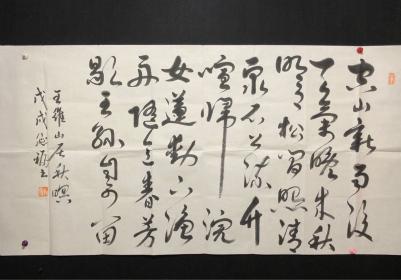 空山新雨後
天氣晚來秋
明月松間照清
泉石上流竹
喧歸浣
女蓮動下漁
舟隨意春芳
歇王孫自可留
王維山居秋暝
戊戌